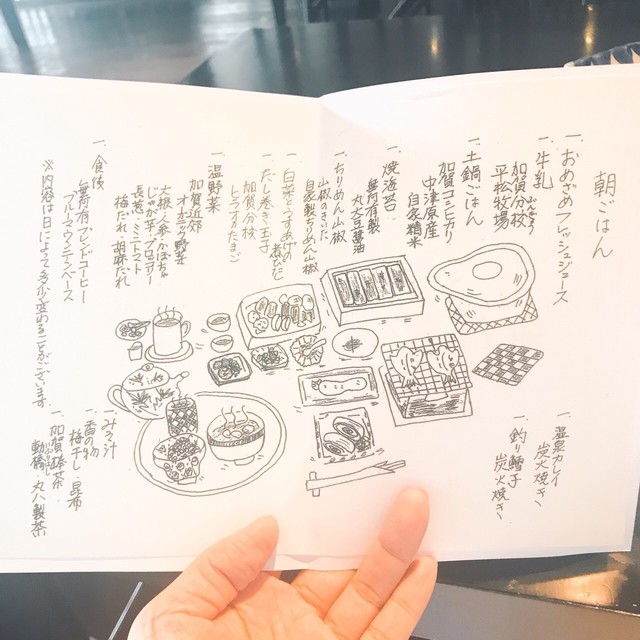 朝ごはん
一、おめざめフレッシュジュース
一、牛乳
加賀分校
平松牧場
一、土鍋ごはん
加賀コシヒカリ
中津原産
自家精米
一、焼海苔
無何有製
丸大豆醤油
一、ちりめん山椒
自家製ちりめん山椒
一、白菜とうすあげの煮びたし
一、だし巻き玉子
加賀分校
一、温野菜
加賀近郊
オーガニック野菜
大根・人参・かぼちゃ
じゃが芋・ブロッコリー
長葱・ミニトマト
梅だれ・胡麻だれ
一、食後
無何有ブレンドコーヒー
※内容は日によって多少異なることがございます
一、温泉カレイ
炭火焼き
一、釣り鱈子
炭火焼き
一、みそ汁
一、香の物
梅干し・昆布
一、加賀棒茶
動橋・丸八製茶